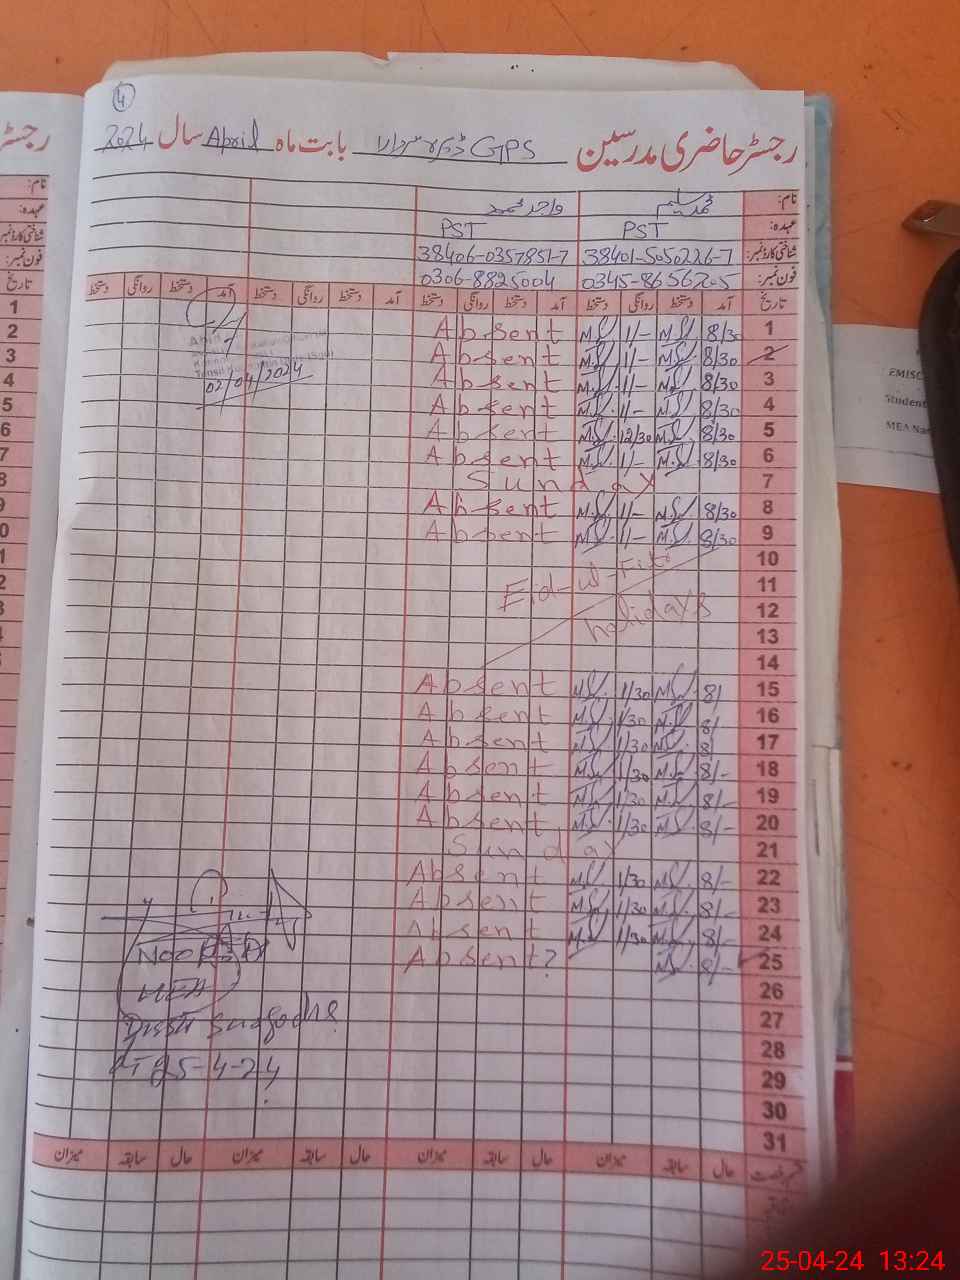 4
رجسٹر حاضری مدرسین GPS ڈیرہ سردارا بابت ماہ April سال 2024
نام: محمد سلیم واجد محمود
عہدہ: PST PST
شناختی کارڈ نمبر: 38401-5050226-7 38406-0357851-7
فون نمبر: 0345-8656205 0306-8825004
تاریخ آمد دستخط روانگی دستخط آمد دستخط روانگی دستخط آمد دستخط روانگی دستخط آمد دستخط روانگی دستخط
1 8/30 M.S 1/- M.S Absent
2 8/30 M.S 1/- M.S Absent
02/04/2024
3 8/30 M.S 1/- M.S Absent
4 8/30 M.S 1/- M.S Absent
5 8/30 M.S 12/30 M.S Absent
6 8/30 M.S 1/- M.S Absent
7 Sunday
8 8/30 M.S 1/- M.S Absent
9 8/30 M.S 1/- M.S Absent
10
11 Eid-ul-Fitr
12 holidays
13
14
15 8/ M.S 1/30 M.S Absent
16 8/ M.S 1/30 M.S Absent
17 8/ M.S 1/30 M.S Absent
18 8/- M.S 1/30 M.S Absent
19 8/- M.S 1/30 M.S Absent
20 8/- M.S 1/30 M.S Absent
21 Sunday
22 8/- M.S 1/30 M.S Absent
23 8/- M.S 1/30 M.S Absent
24 8/- M.S 1/30 M.S Absent
25 8/- M.S Absent?
26
27
28
29
30
31
MEA
25-4-24
حال سابقہ میزان حال سابقہ میزان حال سابقہ میزان حال سابقہ میزان
رجسٹر
نام:
عہدہ:
شناختی کارڈ نمبر
فون نمبر:
تاریخ
1
2
3
4
5
6
7
8
9
0
1
2
3
EMISC
Student
MEA Nam
25-04-24 13:24